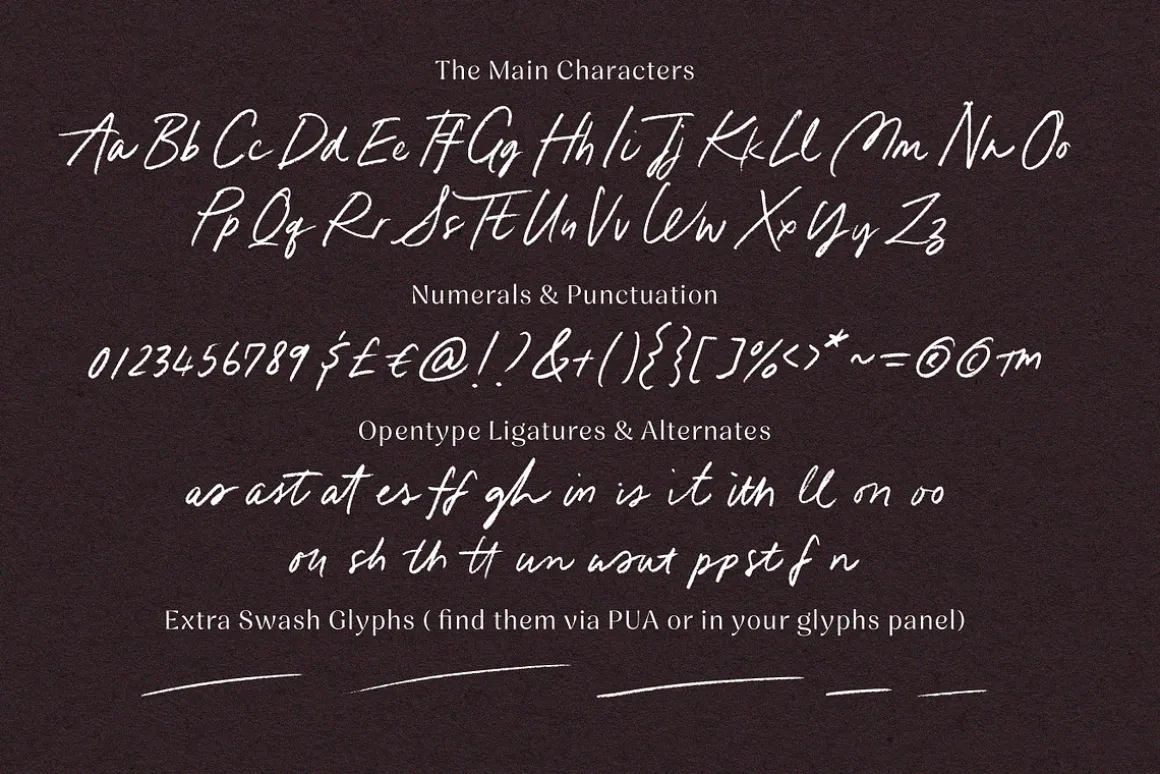 The Main Characters
Aa Bb Cc Dd Ee Ff Gg Hh Ii Jj Kk Ll Mm Nn Oo
Pp Qq Rr Ss Tt Uu Vv Ww Xx Yy Zz
Numerals & Punctuation
0123456789 $ £ € @ ! ? & + ( ) { } [ ] % < > * ~ = © © ™
Opentype Ligatures & Alternates
as ast at es ff gh in is it ith ll on oo
ou sh th tt un us ut pp st f n
Extra Swash Glyphs ( find them via PUA or in your glyphs panel)